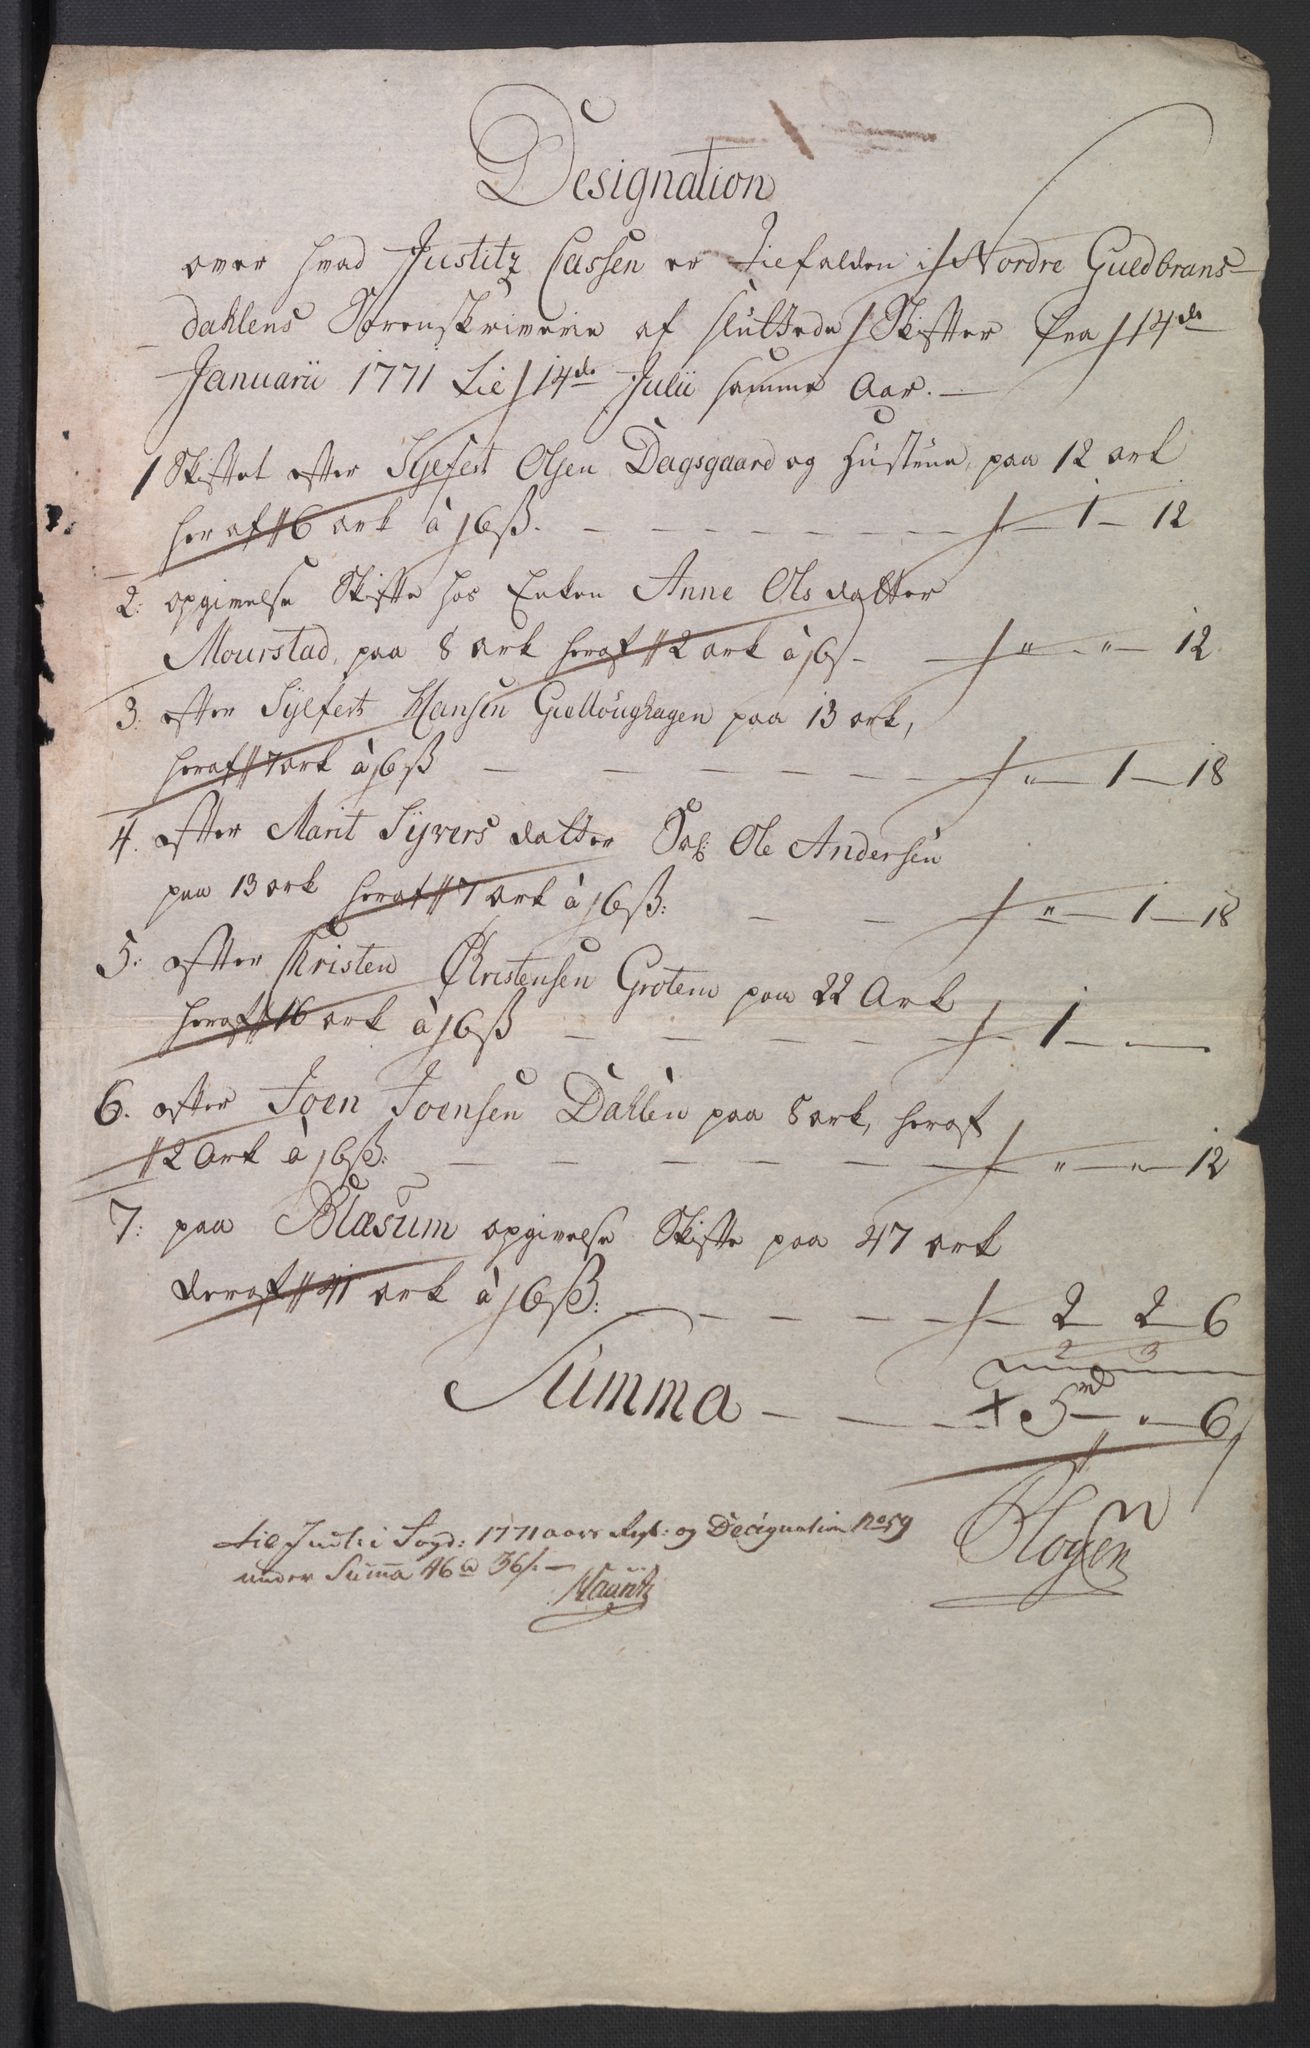 Designation
over hvad Justitz Cassen er tilfalden i Nordre Guldbrans-
dahlens Sorenskriverie af sluttede Skifter fra 14de
Januarii 1771 til 14de Julii samme Aar. —
1 Skiftet efter Syefest Olsen Dagsgaard og Hustrue, paa 12 ark
heraf 6 ark à 6ß. — — — — — — — 1 — 12
2: opgivelse Skifte hos Enken Anne Olsdatter
Mourstad, paa 8 ark heraf 2 ark à 6 — — " — " — 12
3. efter Syefest Hansen paa 13 ark,
heraf 7 ark à 6ß — — — — — — " — 1 — 18
4. efter Marit Syversdatter Ole Andersen
paa 13 ark heraf 7 ark à 6ß: — — — " — 1 — 18
5: efter Kristen Christensen Grotem paa 22 Ark
heraf 16 ark à 6ß — — — — — 1 — —
6. efter Joen Joensen Dahlen paa 8 ark, heraf
2 Ark à 6ß: — — — — — — " — " — 12
7: paa Blæsum opgivelse Skifte paa 47 ark
deraf 41 ark à 6ß: — — — — — 2 — 2 — 6
2 3
Summa — — — 5 rd — " — 6
til Justi i Sogd: 1771 aars Regl: og Designation No 59
under Summa 46 rd 36 ß. —